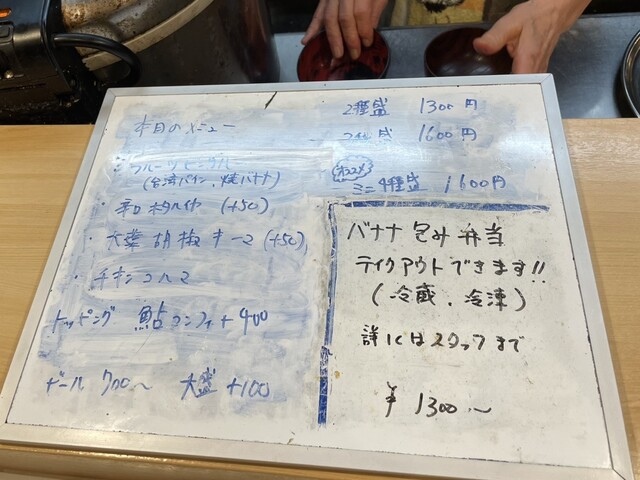 本日のメニュー
・フルーツビンダルー
(台湾パイン、焼バナナ)
・辛口ホタルイカ (+50)
・大葉胡椒キーマ (+50)
・チキンコルマ
トッピング 鮎コンフィ+400
ビール 700～ 大盛+100
2種盛 1300円
3種盛 1600円
オススメ
ミニ4種盛 1600円
バナナ包み弁当
テイクアウトできます!!
(冷蔵、冷凍)
詳しくはスタッフまで
¥1300～